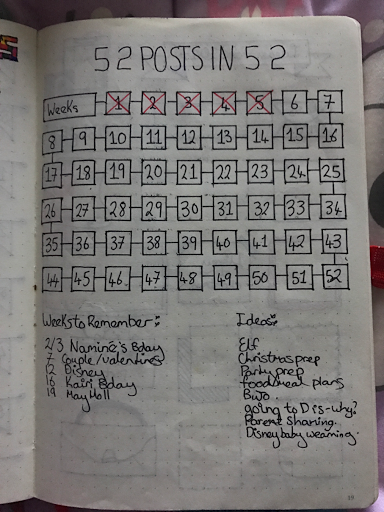 52 POSTS IN 52
Weeks 1 2 3 4 5 6 7
8 9 10 11 12 13 14 15 16
17 18 19 20 21 22 23 24 25
26 27 28 29 30 31 32 33 34
35 36 37 38 39 40 41 42 43
44 45 46 47 48 49 50 51 52
Weeks to Remember:
2/3 Naminé's Bday
7 Couple/valentines
12 Disney
16 Kairi Bday
19 May Hall
Ideas:
Elf
Christmas prep
Party prep
food/meal plans
BuJo.
going to Dis-why?
Parent Sharing.
Disney baby weaning.
19